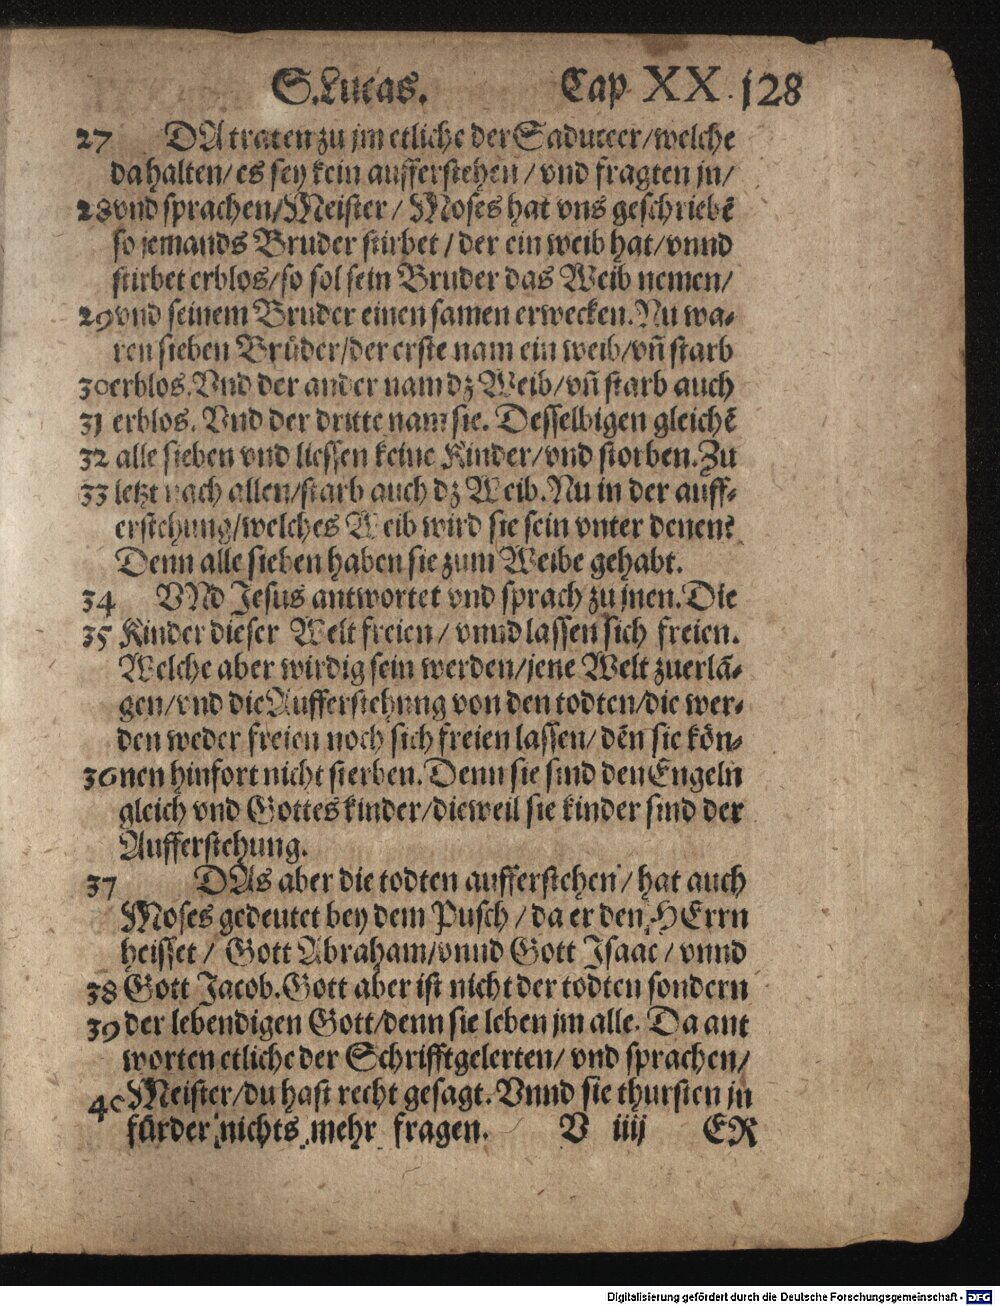 S. Lucas. Cap XX. 128
27 DA traten zu jm etliche der Saduceer/welche
da halten/ es sey kein aufferstehen / vnd fragten jn/
28 vnd sprachen/Meister / Moses hat vns geschriebẽ
so jemands Bruder stirbet / der ein weib hat/vnnd
stirbet erblos/so sol sein Bruder das Weib nemen/
29 vnd seinem Bruder einen samen erwecken. Nu wa-
ren sieben Brüder/der erste nam ein weib/vñ starb
30 erblos. Vnd der ander nam dz Weib/vñ starb auch
31 erblos. Vnd der dritte nam sie. Desselbigen gleichẽ
32 alle sieben vnd liessen keine Kinder/vnd storben. Zu
33 letzt nach allen/starb auch dz Weib. Nu in der auff-
erstehung/welches Weib wird sie sein vnter denen?
Denn alle sieben haben sie zum Weibe gehabt.
34 VNd Jesus antwortet vnd sprach zu jnen. Die
35 Kinder dieser Welt freien / vnnd lassen sich freien.
Welche aber wirdig sein werden/jene Welt zuerlã-
gen/vnd die Aufferstehung von den todten/die wer-
den weder freien noch sich freien lassen/ dẽn sie kön-
36 nen hinfort nicht sterben. Denn sie sind den Engeln
gleich vnd Gottes kinder/dieweil sie kinder sind der
Aufferstehung.
37 DAs aber die todten aufferstehen / hat auch
Moses gedeutet bey dem Pusch / da er den HErrn
heisset / Gott Abraham/vnnd Gott Isaac / vnnd
38 Gott Jacob. Gott aber ist nicht der todten sondern
39 der lebendigen Gott/denn sie leben jm alle. Da ant
worten etliche der Schrifftgelerten/ vnd sprachen/
40 Meister/du hast recht gesagt. Vnnd sie thursten jn
fürder nichts mehr fragen. V iiij ER
Digitalisierung gefördert durch die Deutsche Forschungsgemeinschaft - DFG